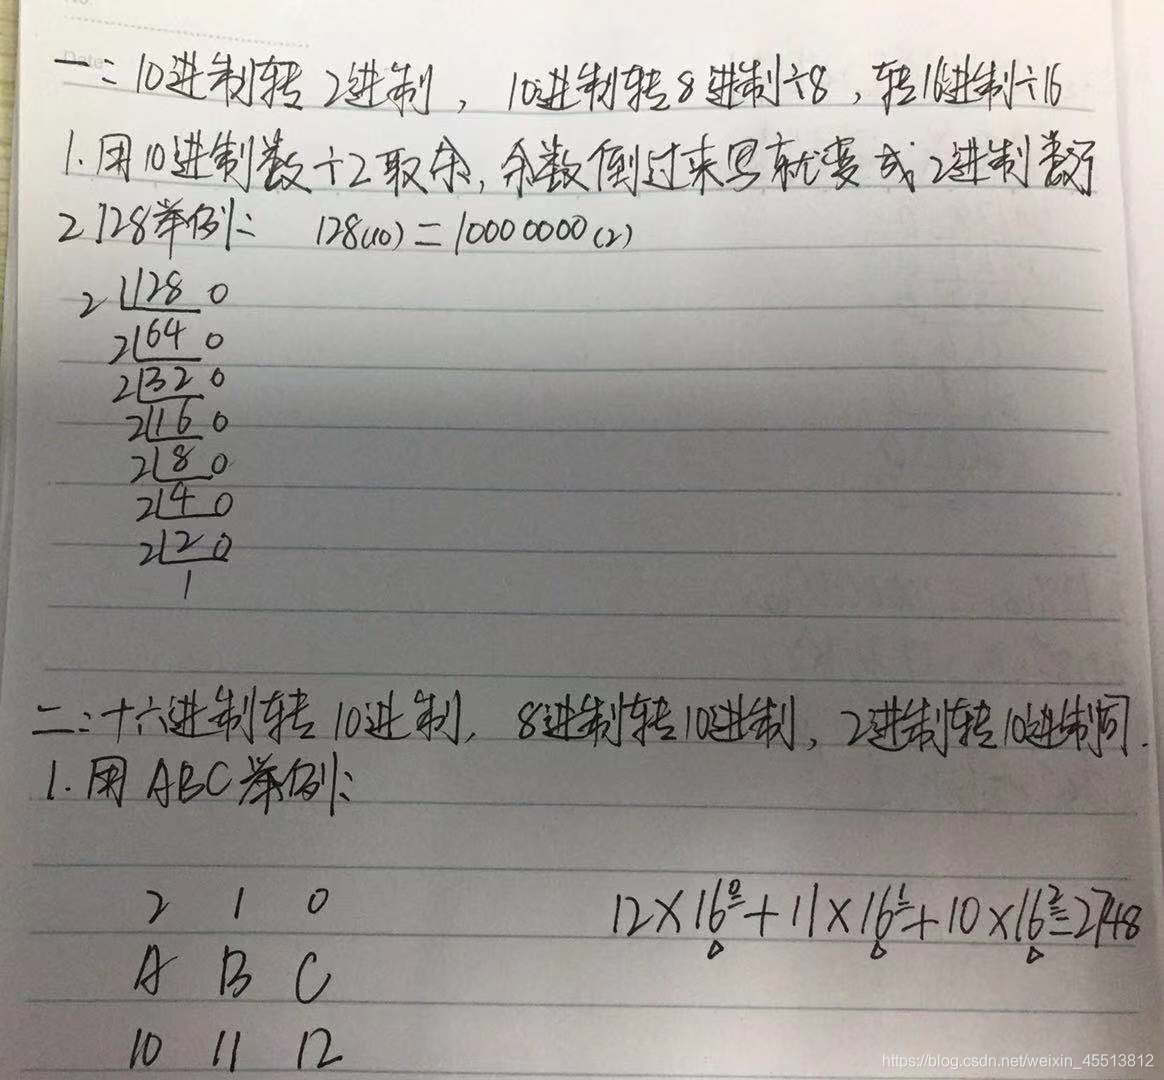 一：10进制转2进制，10进制转8进制÷8，转16进制÷16
1.用10进制数÷2取余,余数倒过来写就变成2进制数
2 128举例： 128(10)=10000000(2)
2 128 0
2 64 0
2 32 0
2 16 0
2 8 0
2 4 0
2 2 0
1
二：十六进制转10进制，8进制转10进制，2进制转10进制同.
1.用ABC举例：
2 1 0
12×16⁰+11×16¹+10×16²=2748
A B C
10 11 12
https://blog.csdn.net/weixin_45513812